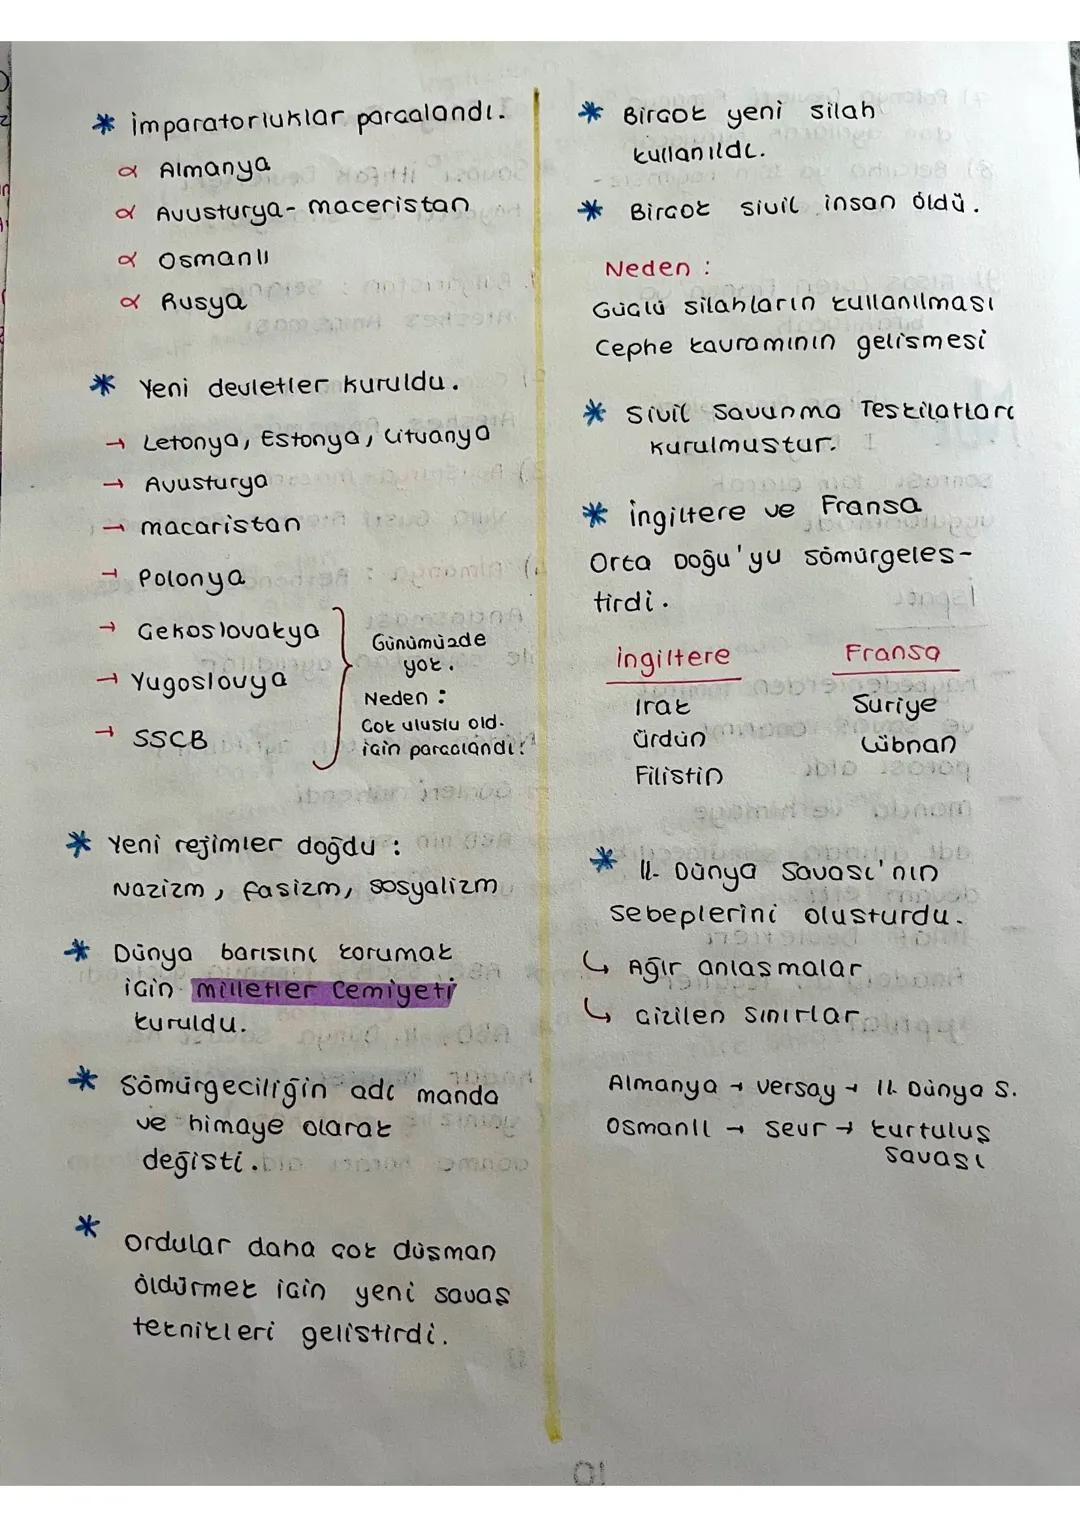 * İmparatorluklar parçalandı.
α Almanya
α Avusturya-maceristan
α Osmanlı
α Rusya
* Yeni devletler kuruldu.
→ Letonya, Estonya, Litvanya
→ Avusturya
→ macaristan
→ Polonya
→ Çekoslovakya
→ Yugoslovya
→ SSCB
Günümüzde
yok.
Neden :
Çok uluslu old.
için parçalandı!
* Yeni rejimler doğdu :
Nazizm, faşizm, sosyalizm
* Dünya barışını korumak
için milletler Cemiyeti
kuruldu.
* Sömürgeciliğin adı manda
ve himaye olarak
değişti.
* ordular daha çok düşman
öldürmek için yeni savaş
teknikleri geliştirdi.
* Birçok yeni silah
kullanıldı.
* Birçok sivil insan öldü.
Neden :
Güçlü silahların kullanılması
Cephe kavramının gelişmesi
* Sivil Savunma Teşkilatları
kurulmuştur.
* İngiltere ve Fransa
Orta Doğu'yu sömürgeleş-
tirdi.
İngiltere Fransa
Irak Suriye
Ürdün Lübnan
Filistin
* II. Dünya Savaşı'nın
sebeplerini oluşturdu.
↳ Ağır anlaşmalar
↳ Çizilen sınırlar
Almanya → Versay → II. Dünya S.
Osmanlı → Sevr → kurtuluş
savaşı